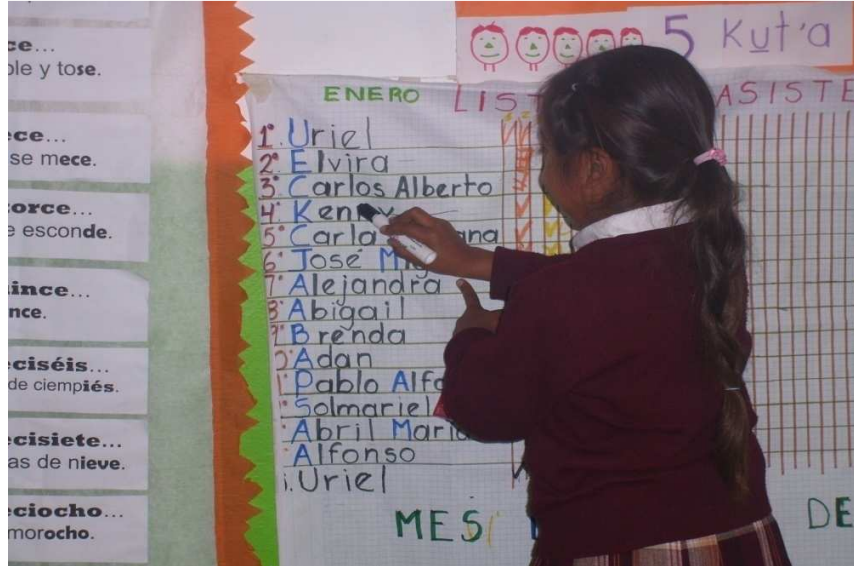 ce...
ble y tose.
ece...
se mece.
orce...
e esconde.
ince...
nce.
eciséis...
de ciempiés.
ecisiete...
as de nieve.
eciocho...
morocho.
5 Kut'a
ENERO LIST ASISTE
1° Uriel
2° Elvira
3° Carlos Alberto
4° Ken
5° Carla ana
6° José
7° Alejandra
8° Abigail
9° Brenda
Adan
Pablo Alfo
Solmariel
Abril Maria
Alfonso
Uriel
MES DE